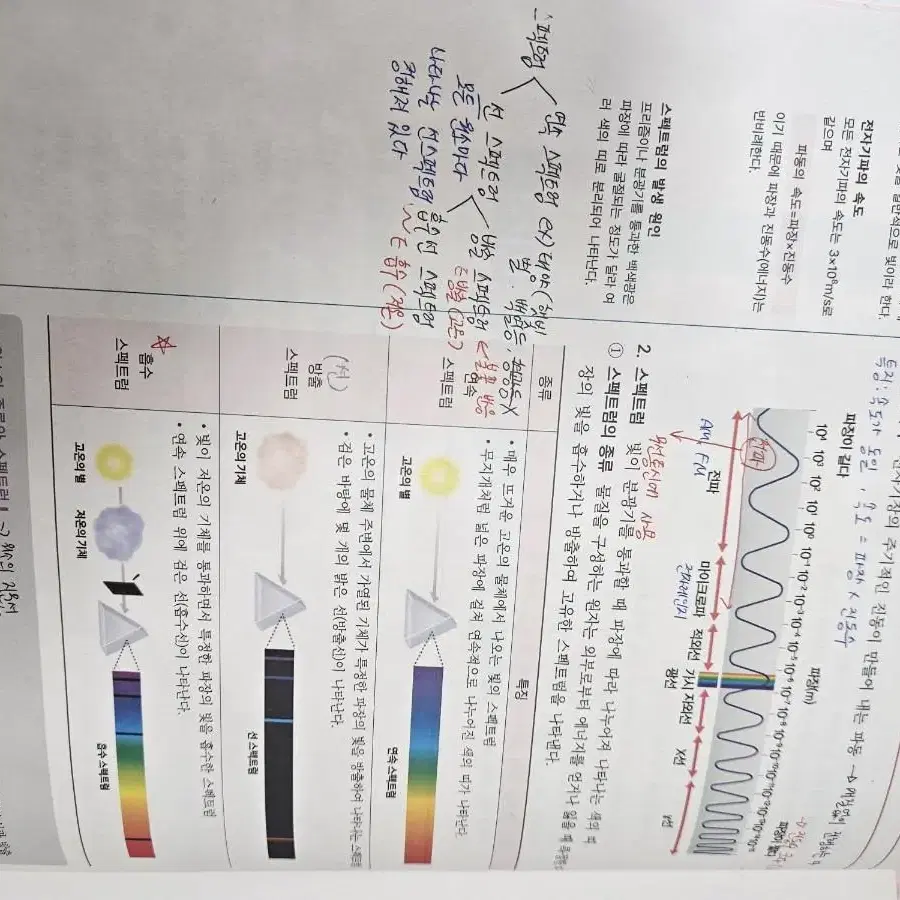 전자기파의 속도
모든 전자기파의 속도는 3×10⁸m/s로
같으며
파동의 속도=파장×진동수
이기 때문에 파장과 진동수(에너지)는
반비례한다.
스펙트럼의 발생 원인
프리즘이나 분광기를 통과한 백색광은
파장에 따라 굴절되는 정도가 달라 여
러 색의 띠로 분리되어 나타난다.
스펙트럼
연속 스펙트럼 ex) 태양
별, 백열등, 형광등X
선 스펙트럼
방출 스펙트럼
흡수 선 스펙트럼
모든 원소마다
나타나는 선스펙트럼
정해져 있다
E 방출 (고온)
E 흡수 (저온)
특징: 속도가 동일, 속도 = 파장 × 진동수
파장이 길다
파장(m)
파장이 짧다
10⁴ 10³ 10² 10¹ 10⁰ 10⁻¹ 10⁻² 10⁻³ 10⁻⁴ 10⁻⁵ 10⁻⁶ 10⁻⁷ 10⁻⁸ 10⁻⁹
전파
전파 마이크로파 적외선 가시광선 자외선 X선 γ선
AM FM
전자레인지
무선통신에 사용
2. 스펙트럼 빛이 분광기를 통과할 때 파장에 따라 나누어져 나타나는 색의 띠
① 스펙트럼의 종류 물질을 구성하는 원자는 외부로부터 에너지를 얻거나 잃을 때 특정한
장의 빛을 흡수하거나 방출하여 고유한 스펙트럼을 나타낸다.
종류 특징
연속
스펙트럼
• 매우 뜨거운 고온의 물체에서 나오는 빛의 스펙트럼
• 무지개처럼 넓은 파장에 걸쳐 연속적으로 나누어진 색의 띠가 나타난다
고온의 별
연속 스펙트럼
(선)
방출
스펙트럼
• 고온의 물체 주변에서 가열된 기체가 특정한 파장의 빛을 방출하여 나타나는 스펙트럼
검은 바탕에 몇 개의 밝은 선(방출선)이 나타난다.
고온의 기체
선 스펙트럼
흡수
스펙트럼
• 빛이 저온의 기체를 통과하면서 특정한 파장의 빛을 흡수한 스펙트럼
• 연속 스펙트럼 위에 검은 선(흡수선)이 나타난다.
고온의 별
저온의 기체
흡수 스펙트럼